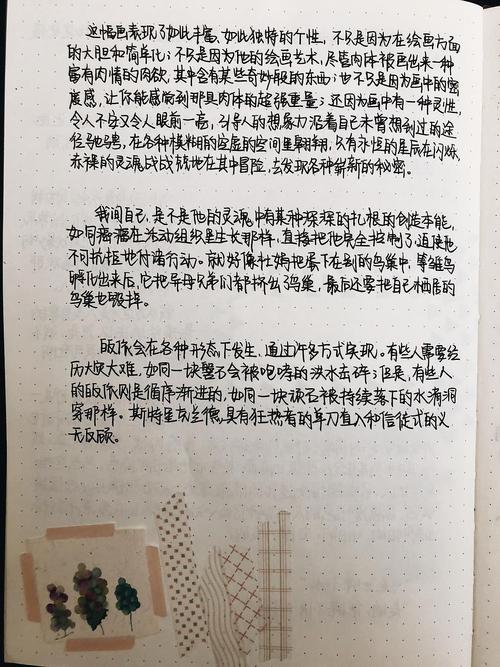 这幅画表现了如此丰富、如此独特的个性，不只是因为在绘画方面
的大胆和简单化；不只是因为他的绘画艺术，尽管肉体被画出来一种
富有肉情的肉欲，其中含有某些奇妙般的东西；也不只是因为画中的密
度感，让你能感觉到那具肉体的超强重量；还因为画中有一种灵性，
令人不安又令人眼前一亮，引导人的想象力沿着自己未曾想到过的途
径驰骋，在各种模糊的空虚的空间里翱翔，只有永恒的星辰在闪烁，
赤裸的灵魂战战兢兢地在其中冒险，去发现各种崭新的秘密。
我问自己，是不是他的灵魂中有某种深深的扎根的创造本能，
如同癌瘤在活动组织里生长那样，直接把他完全控制了，逼使他
不可抗拒地付诸行动。就好像杜鹃把蛋下在别的鸟巢中，等雏鸟
孵化出来后，它把异母兄弟们都挤出了鸟巢，最后还要把自己栖居的
鸟巢也毁掉。
皈依会在各种形态下发生，通过许多方式实现。有些人需要经
历大灾大难，如同一块磐石会被咆哮的洪水击碎；但是，有些人
的皈依则是循序渐进的，如同一块顽石被持续落下的水滴洞
穿那样。斯特里克兰德，具有狂热者的单刀直入和信徒式的义
无反顾。